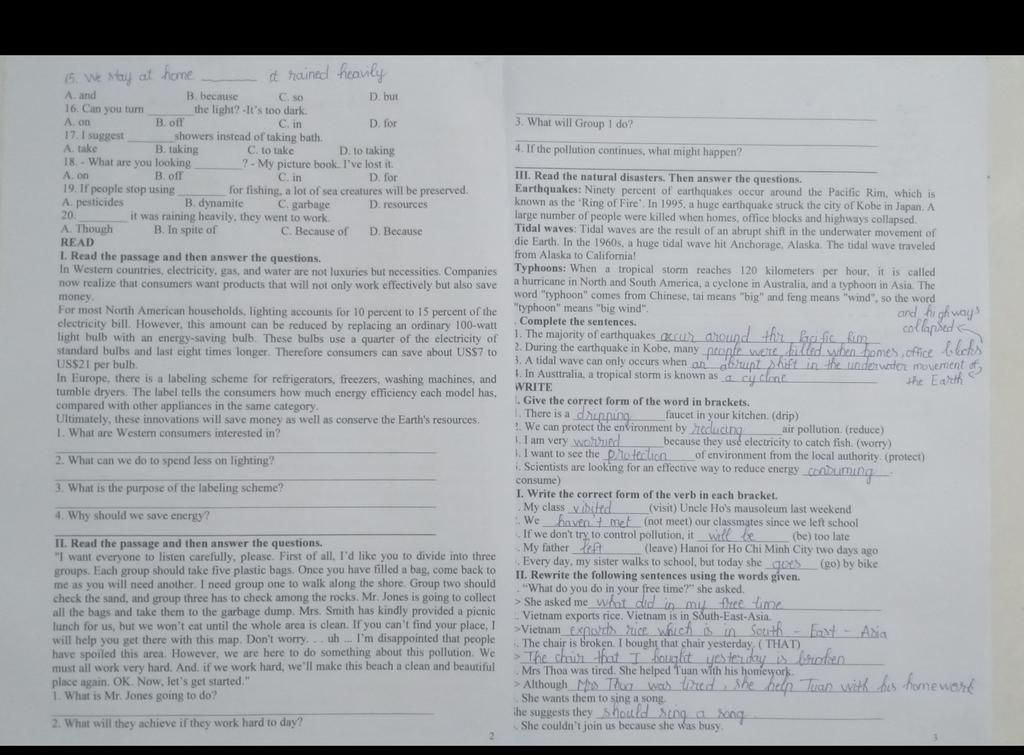 15. We stay at home ______ it rained heavily
A. and B. because C. so D. but
16. Can you turn ______ the light? -It's too dark.
A. on B. off C. in D. for
17. I suggest ______ showers instead of taking bath.
A. take B. taking C. to take D. to taking
18. - What are you looking ______ ? - My picture book. I've lost it.
A. on B. off C. in D. for
19. If people stop using ______ for fishing, a lot of sea creatures will be preserved.
A. pesticides B. dynamite C. garbage D. resources
20. ______ it was raining heavily, they went to work.
A. Though B. In spite of C. Because of D. Because
READ
I. Read the passage and then answer the questions.
In Western countries, electricity, gas, and water are not luxuries but necessities. Companies
now realize that consumers want products that will not only work effectively but also save
money.
For most North American households, lighting accounts for 10 percent to 15 percent of the
electricity bill. However, this amount can be reduced by replacing an ordinary 100-watt
light bulb with an energy-saving bulb. These bulbs use a quarter of the electricity of
standard bulbs and last eight times longer. Therefore consumers can save about US$7 to
US$21 per bulb.
In Europe, there is a labeling scheme for refrigerators, freezers, washing machines, and
tumble dryers. The label tells the consumers how much energy efficiency each model has,
compared with other appliances in the same category.
Ultimately, these innovations will save money as well as conserve the Earth's resources.
1. What are Western consumers interested in?
2. What can we do to spend less on lighting?
3. What is the purpose of the labeling scheme?
4. Why should we save energy?
II. Read the passage and then answer the questions.
"I want everyone to listen carefully, please. First of all, I'd like you to divide into three
groups. Each group should take five plastic bags. Once you have filled a bag, come back to
me as you will need another. I need group one to walk along the shore. Group two should
check the sand, and group three has to check among the rocks. Mr. Jones is going to collect
all the bags and take them to the garbage dump. Mrs. Smith has kindly provided a picnic
lunch for us, but we won't eat until the whole area is clean. If you can't find your place, I
will help you get there with this map. Don't worry. . . uh ... I'm disappointed that people
have spoiled this area. However, we are here to do something about this pollution. We
must all work very hard. And. if we work hard, we'll make this beach a clean and beautiful
place again. OK. Now, let's get started."
1. What is Mr. Jones going to do?
2. What will they achieve if they work hard to day?
2
3. What will Group 1 do?
4. If the pollution continues, what might happen?
III. Read the natural disasters. Then answer the questions.
Earthquakes: Ninety percent of earthquakes occur around the Pacific Rim, which is
known as the 'Ring of Fire'. In 1995, a huge earthquake struck the city of Kobe in Japan. A
large number of people were killed when homes, office blocks and highways collapsed.
Tidal waves: Tidal waves are the result of an abrupt shift in the underwater movement of
die Earth. In the 1960s, a huge tidal wave hit Anchorage, Alaska. The tidal wave traveled
from Alaska to California!
Typhoons: When a tropical storm reaches 120 kilometers per hour, it is called
a hurricane in North and South America, a cyclone in Australia, and a typhoon in Asia. The
word "typhoon" comes from Chinese, tai means "big" and feng means "wind", so the word
"typhoon" means "big wind".
and highways
collapsed
. Complete the sentences.
1. The majority of earthquakes occur around the Pacific Rim
2. During the earthquake in Kobe, many people were killed when homes, office blocks
3. A tidal wave can only occurs when an abrupt shift in the underwater movement of
the Earth
4. In Austrailia, a tropical storm is known as a cyclone
WRITE
I. Give the correct form of the word in brackets.
. There is a dripping faucet in your kitchen. (drip)
2. We can protect the environment by reducing air pollution. (reduce)
. I am very worried because they use electricity to catch fish. (worry)
. I want to see the protection of environment from the local authority. (protect)
. Scientists are looking for an effective way to reduce energy consuming .
consume)
I. Write the correct form of the verb in each bracket.
. My class visited (visit) Uncle Ho's mausoleum last weekend
. We haven't met (not meet) our classmates since we left school
. If we don't try to control pollution, it will be (be) too late
. My father left (leave) Hanoi for Ho Chi Minh City two days ago
. Every day, my sister walks to school, but today she goes (go) by bike
II. Rewrite the following sentences using the words given.
. "What do you do in your free time?" she asked.
> She asked me what did in my free time
. Vietnam exports rice. Vietnam is in South-East-Asia.
>Vietnam exports rice which is in South - East - Asia
. The chair is broken. I bought that chair yesterday. ( THAT)
> The chair that I bought yesterday is broken
. Mrs Thoa was tired. She helped Tuan with his homework.
> Although Mrs Thoa was tired, she help Tuan with his homework
. She wants them to sing a song.
he suggests they should sing a song
. She couldn't join us because she was busy.
3